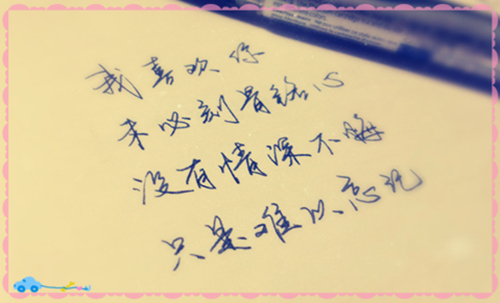 我喜欢你
未必刻骨铭心
没有情深不悔
只是难以忘记